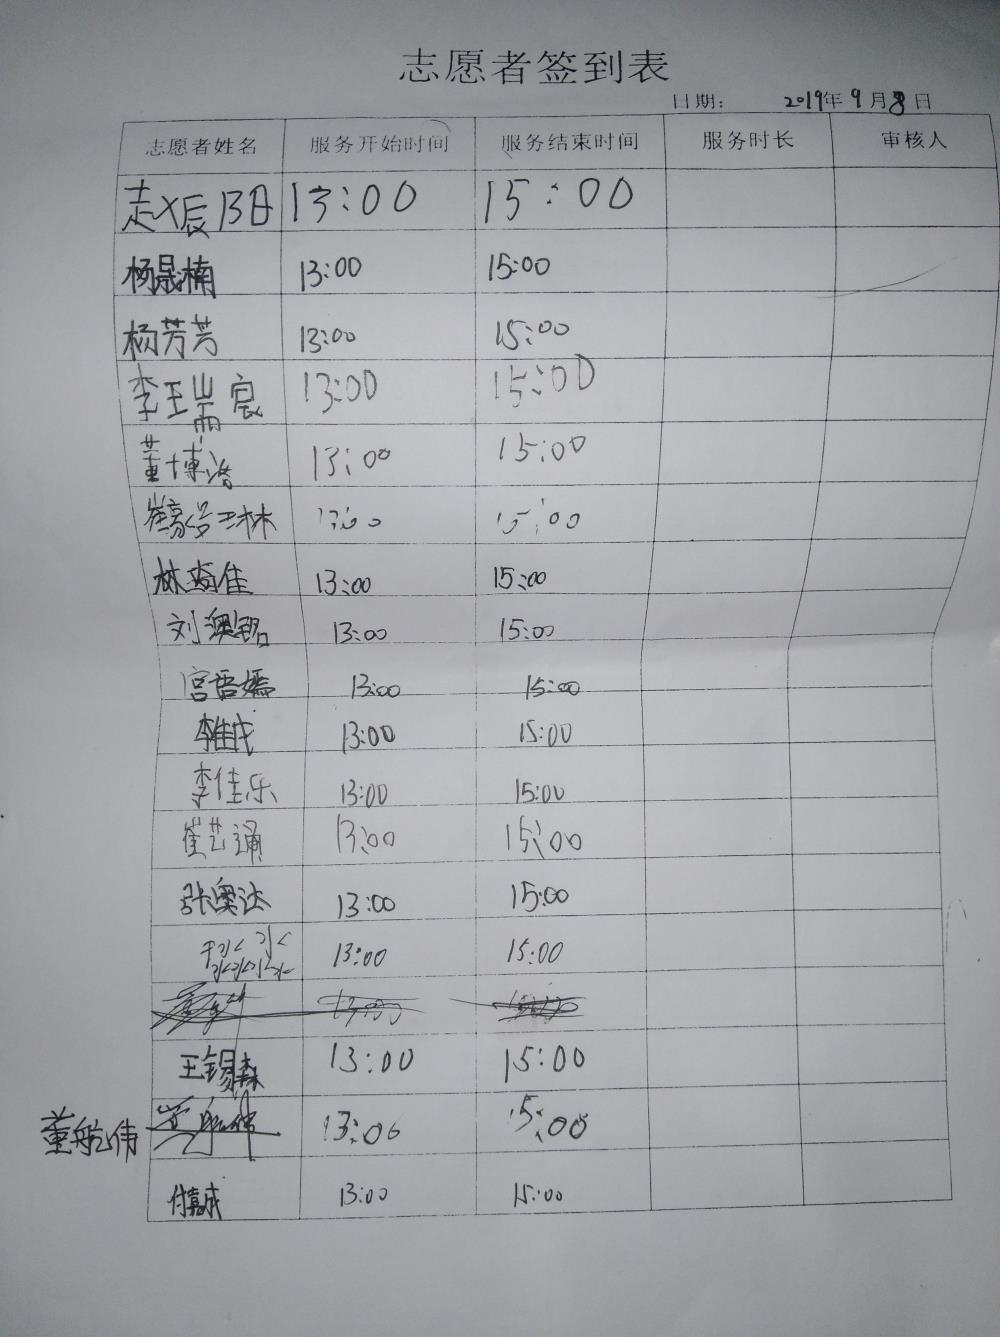 志愿者签到表
日期： 2019年9月8日
志愿者姓名 服务开始时间 服务结束时间 服务时长 审核人
赵辰阳 13:00 15:00
杨晟楠 13:00 15:00
杨芳芳 13:00 15:00
李瑞宸 13:00 15:00
董博浩 13:00 15:00
13:00 15:00
林 佳 13:00 15:00
刘澳铭 13:00 15:00
宫语嫣 13:00 15:00
李佳 13:00 15:00
李佳乐 13:00 15:00
崔艺涵 13:00 15:00
张奥达 13:00 15:00
13:00 15:00
王锡森 13:00 15:00
董航伟 13:00 15:00
付嘉成 13:00 15:00